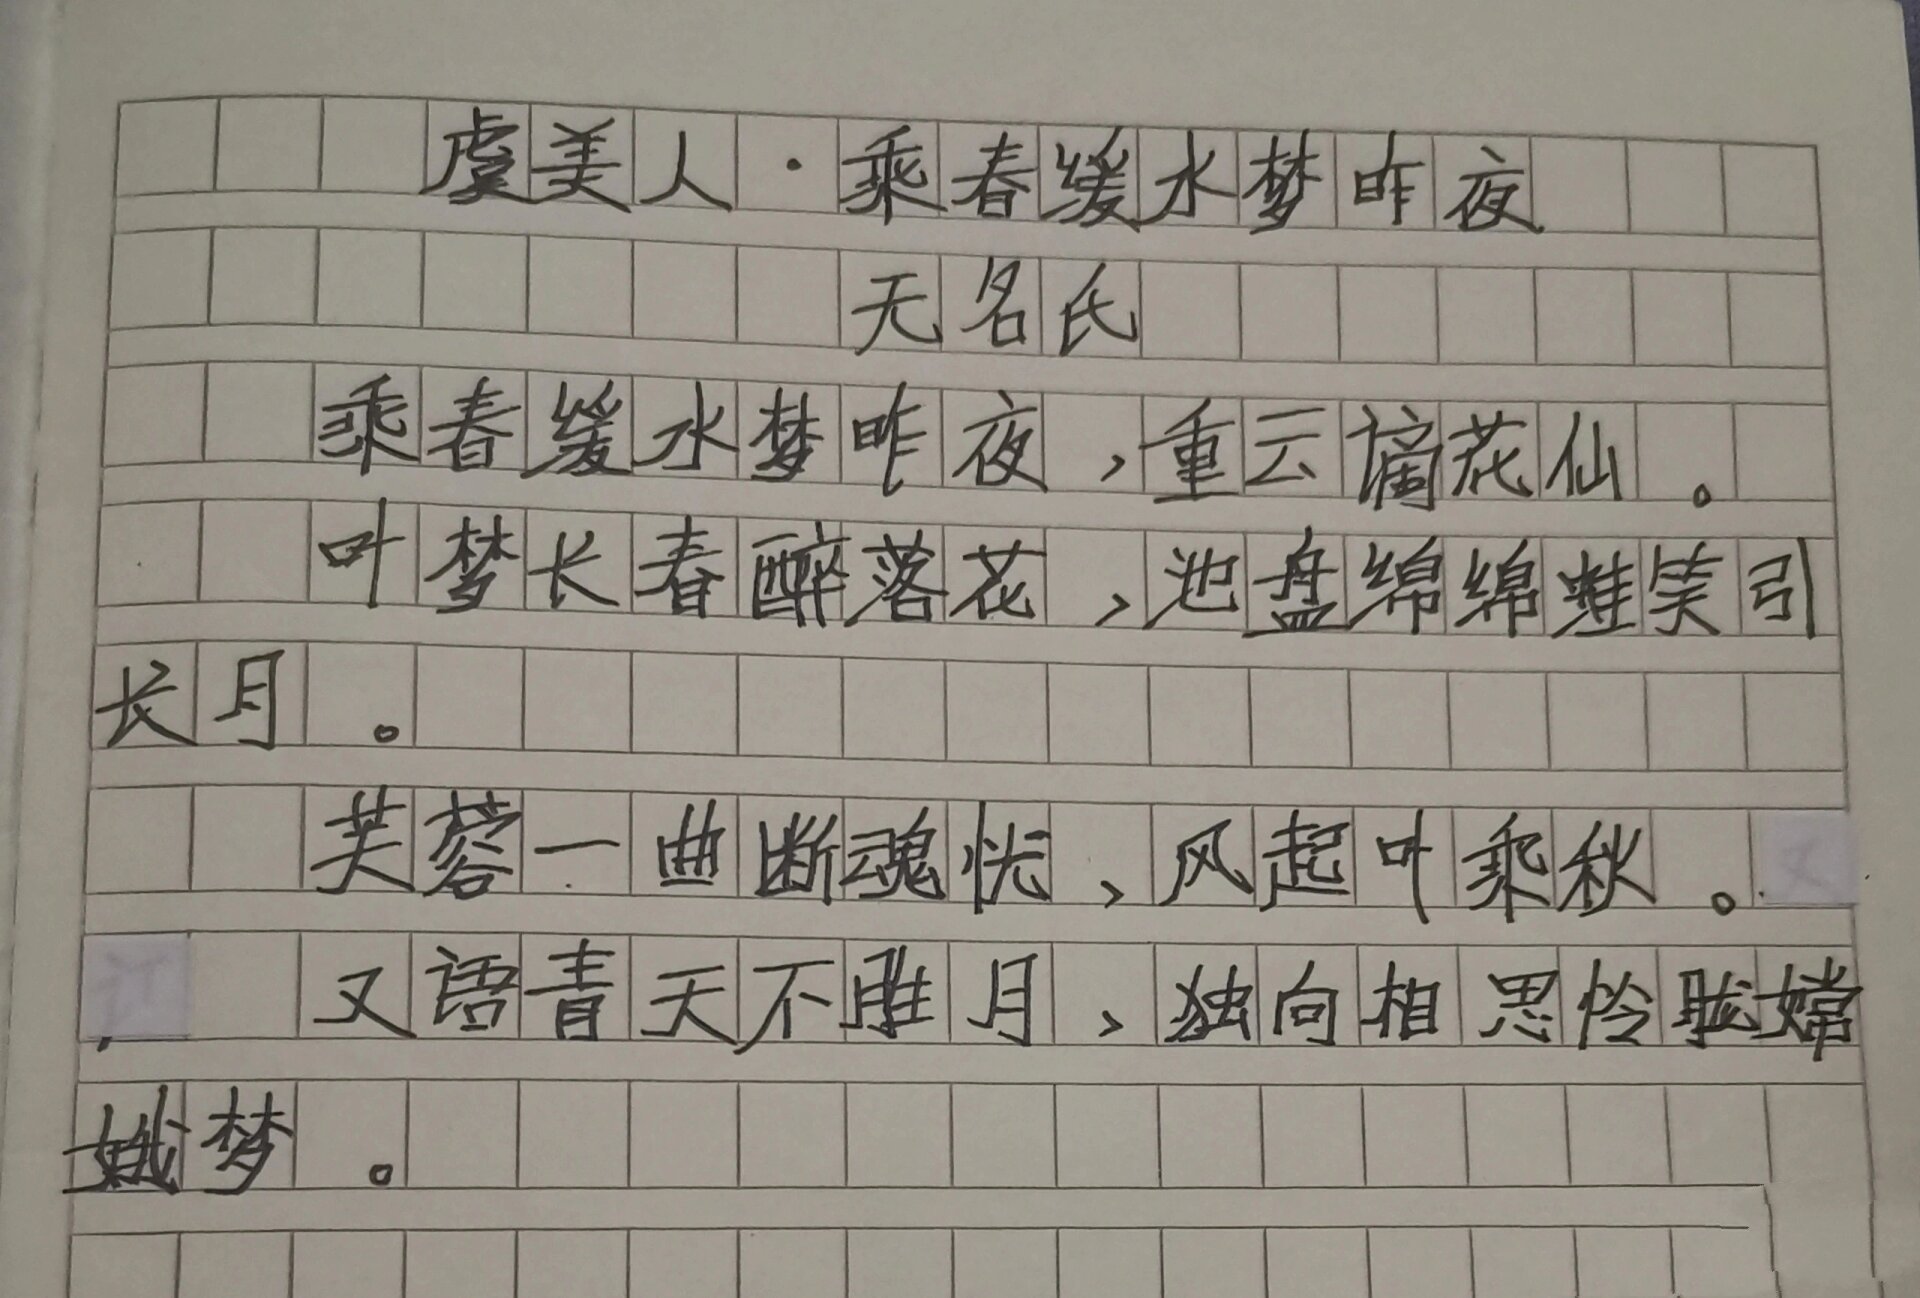 虞美人·乘春缓水梦昨夜
无名氏
乘春缓水梦昨夜，重云谪花仙。
叶梦长春醉落花，池盘绵绵蛙笑引
长月。
芙蓉一曲断魂恍，风起叶乘秋。
又语青天不胜月，独向相思怜眬嫦
娥梦。